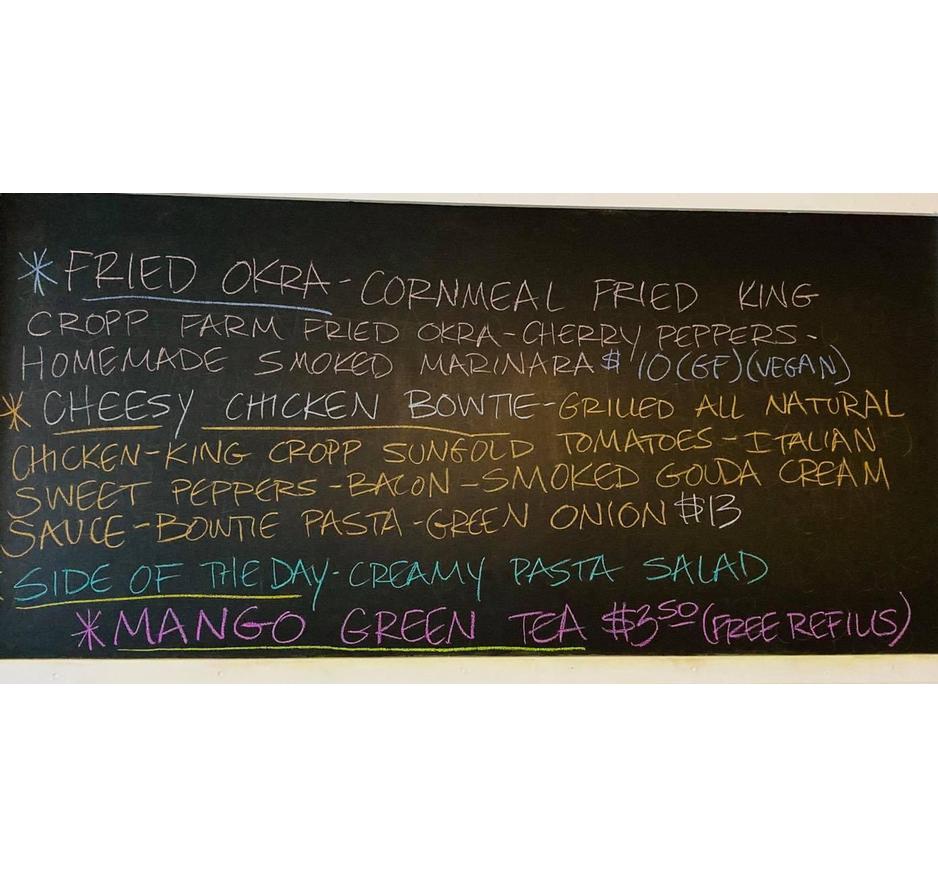 * FRIED OKRA - CORNMEAL FRIED KING
CROPP FARM FRIED OKRA - CHERRY PEPPERS -
HOMEMADE SMOKED MARINARA $10 (GF) (VEGAN)
* CHEESY CHICKEN BOWTIE - GRILLED ALL NATURAL
CHICKEN - KING CROPP SUNGOLD TOMATOES - ITALIAN
SWEET PEPPERS - BACON - SMOKED GOUDA CREAM
SAUCE - BOWTIE PASTA - GREEN ONION $13
SIDE OF THE DAY - CREAMY PASTA SALAD
* MANGO GREEN TEA $3.50 (FREE REFILLS)